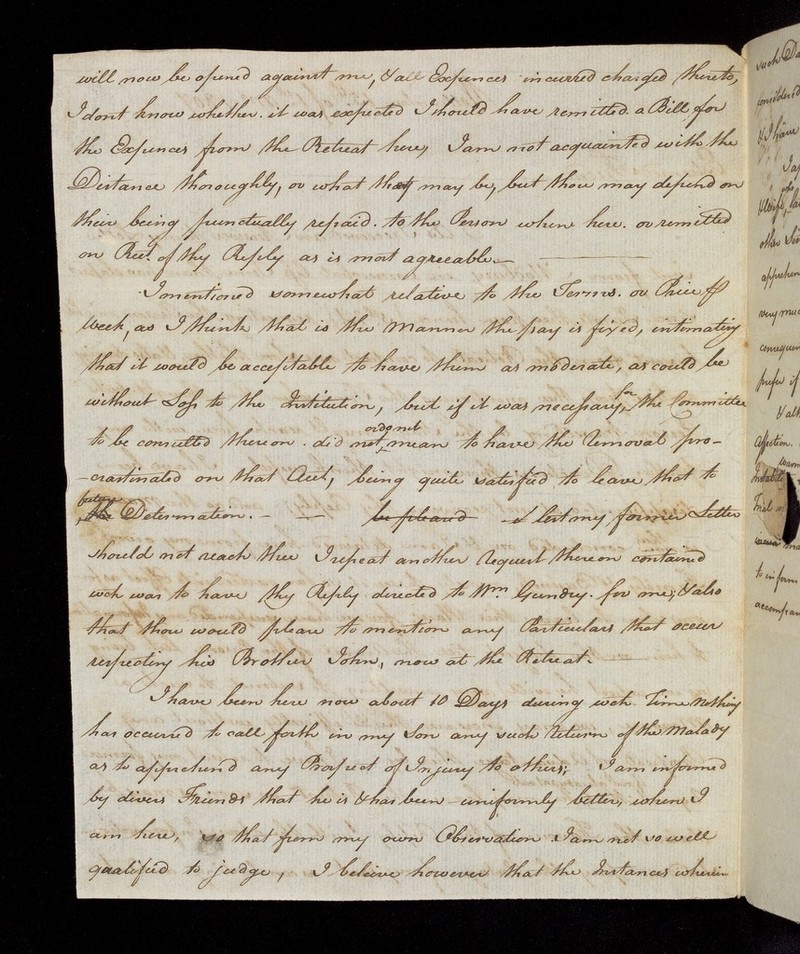 will now be opened against me, & all Expences incurred charged thereto,
I dont know whether. it was expected I should have remitted a Bill for
the Expences from the Retreat here, I am not acquainted with the
Distance thoroughly, or what they may be, but thou may depend on
their being punctually repaid. to the Person when here. or remitted
on Recd. of thy Reply as is most agreeable. —
I mentioned somewhat relative to the Terms. or Price
Week, as I think that is the Manner the pay is fixed, intimating
that it would be acceptable to have them as moderate, as could be
without Loss to the Institution, but if it was necessary, for the Committee
to be consulted thereon. did not mean to have the Removal pro-
-crastinated on that Acct, being quite satisfied to leave that to
the future Determation. — — be pleased lest my former Letter
should not reach thee I repeat another Request thereon contained
wch was to have thy Reply directed to Wm. Gundry. for me, & also
that thou would please to mention any Particulars that occur
respecting his Brother John, now at the Retreat.
I have been here now about 10 Days during wch Time Nothing
has occurred to call forth in my Son any such Return of the Malady
as to apprehend any Prospect of Injury to others; I am informed
by divers Friends that he is & has been uniformly better, when I
am here, so that from my own Observation I am not so well
qualified to judge, I beleive however that the Instances wherein
such
considered
& I have
other
apprehen
very muc
consequen
prefer if
& alt
Affection.
warm
Trial
to inform
accompan